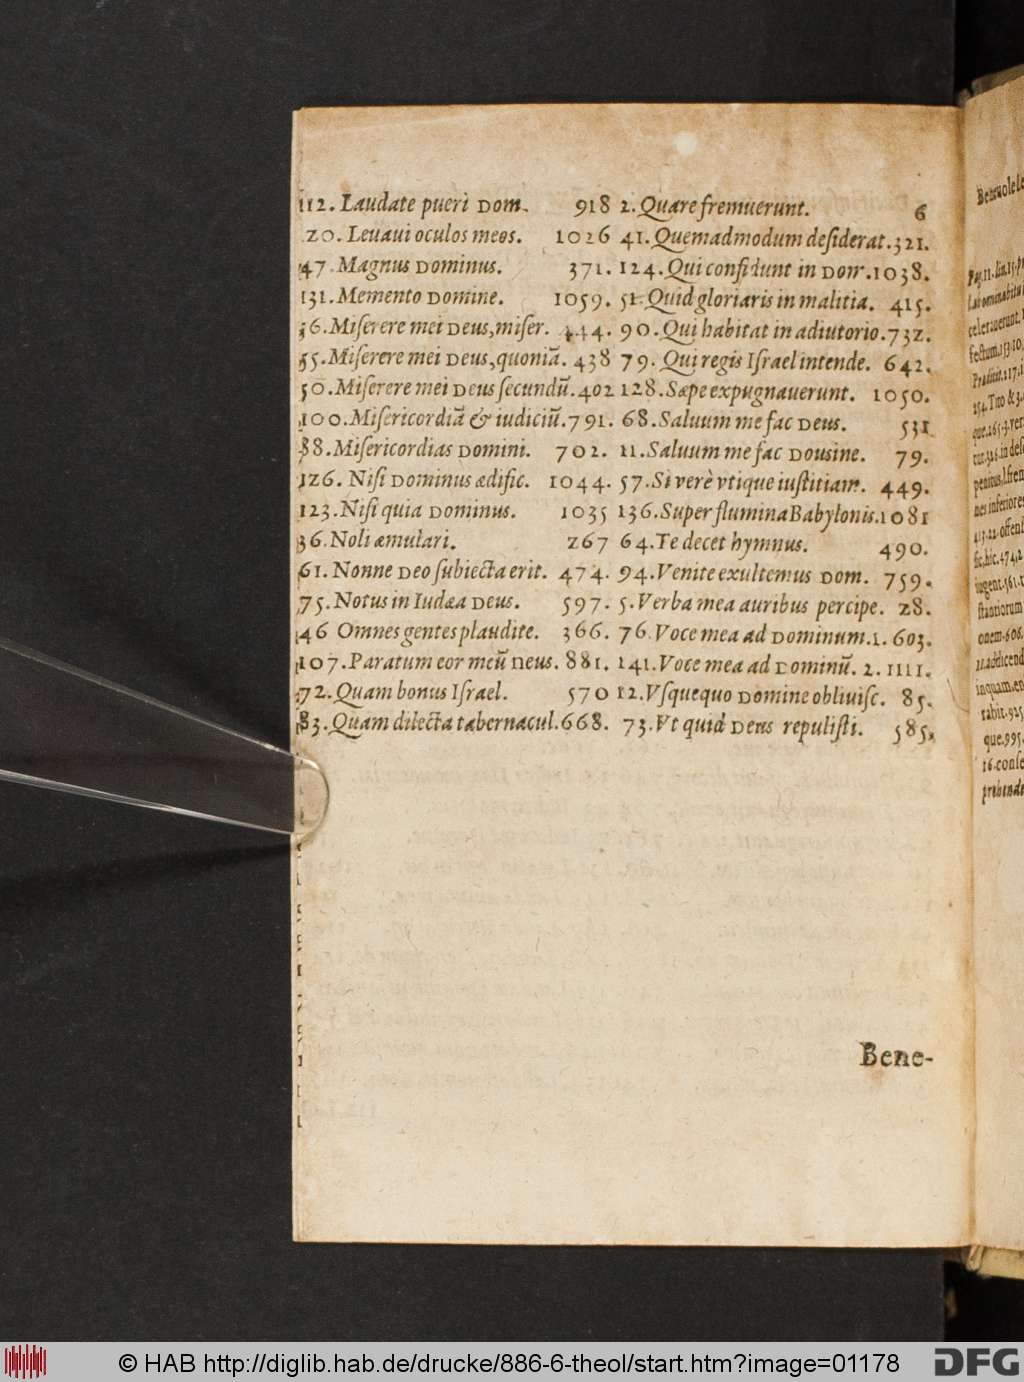 112. Laudate pueri Dom. 918
20. Leuaui oculos meos. 1026
47. Magnus Dominus. 371.
131. Memento Domine. 1059.
36. Miſerere mei Deus, miſer. 444.
55. Miſerere mei Deus, quoniā. 438
50. Miſerere mei Deus ſecundū. 402
100. Miſericordiā & iudiciū. 791.
88. Miſericordias Domini. 702.
126. Niſi Dominus ædific. 1044.
123. Niſi quia Dominus. 1035
36. Noli æmulari. 267
61. Nonne Deo ſubiecta erit. 474.
75. Notus in Iudæa Deus. 597.
46 Omnes gentes plaudite. 366.
107. Paratum cor meū Deus. 881.
72. Quam bonus Iſrael. 570
83. Quam dilecta tabernacul. 668.
2. Quare fremuerunt. 6
41. Quemadmodum deſiderat. 321.
124. Qui confidunt in Dom. 1038.
51. Quid gloriaris in malitia. 415.
90. Qui habitat in adiutorio. 732.
79. Qui regis Iſrael intende. 642.
128. Sæpe expugnauerunt. 1050.
68. Saluum me fac Deus. 531
11. Saluum me fac Domine. 79.
57. Si verè vtique iuſtitiam. 449.
136. Super flumina Babylonis. 1081
64. Te decet hymnus. 490.
94. Venite exultemus Dom. 759.
5. Verba mea auribus percipe. 28.
76. Voce mea ad Dominum. 1. 603.
141. Voce mea ad Dominū. 2. 1111.
12. Vſquequo Domine obliuiſc. 85.
73. Vt quid Deus repuliſti. 585.
Bene-
© HAB http://diglib.hab.de/drucke/886-6-theol/start.htm?image=01178
DFG